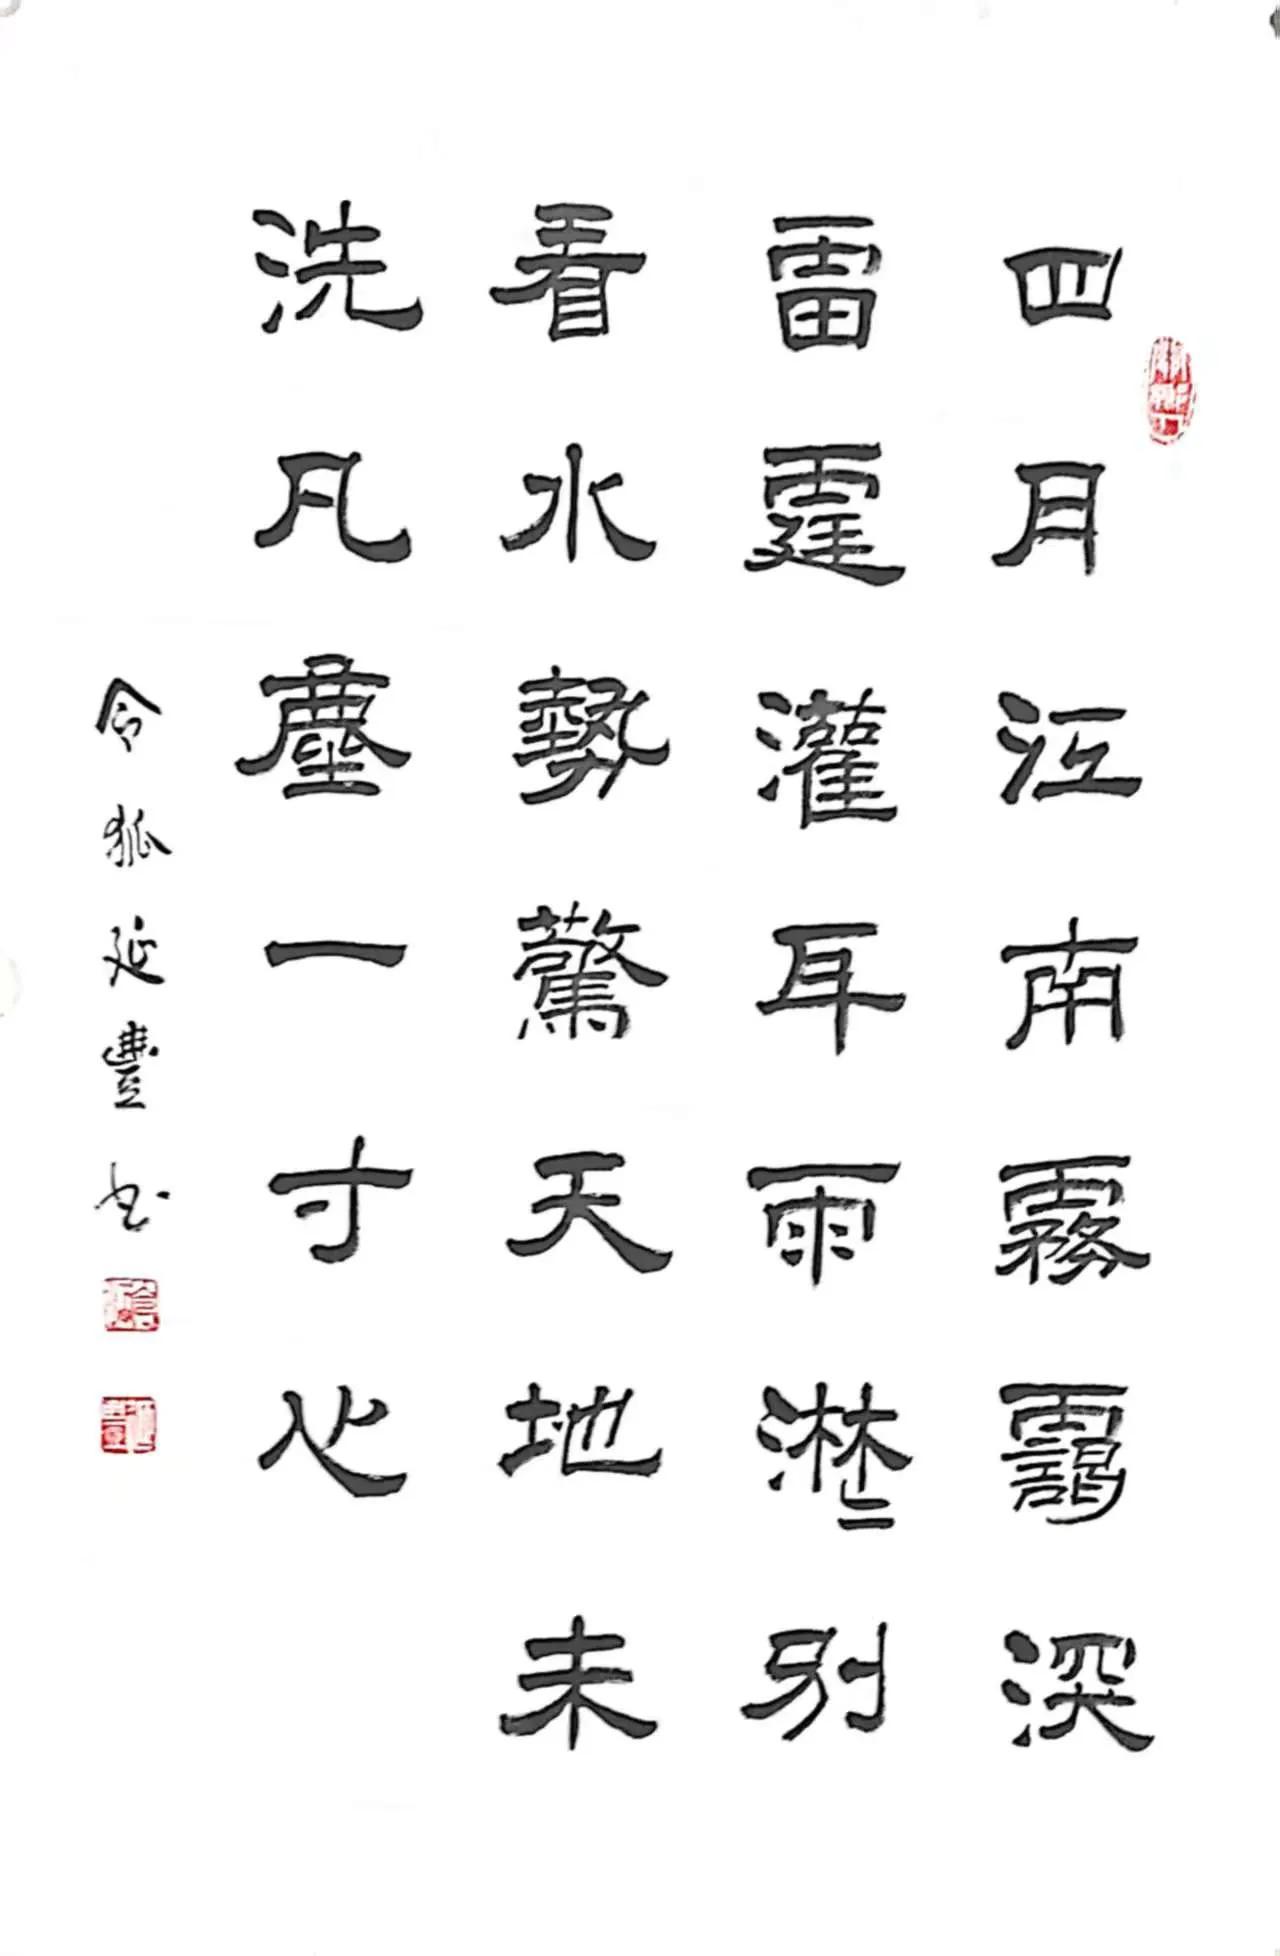 四月江南霧靄深
雷霆灌耳雨淋々別
看水勢驚天地未
洗凡塵一寸心
令狐延豐书